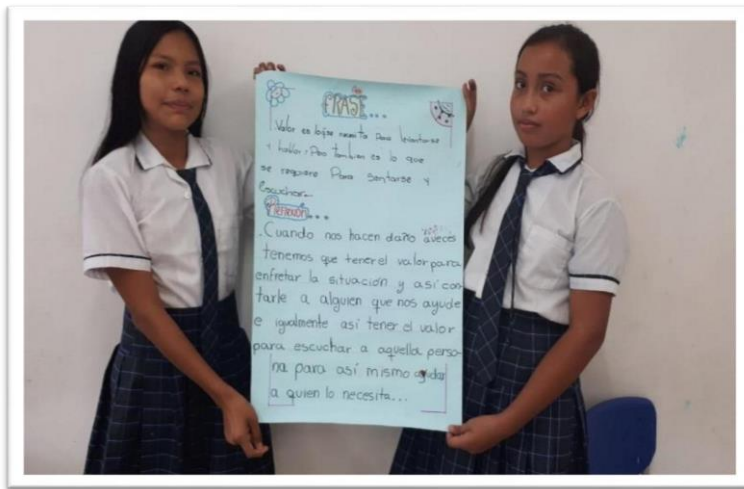 FRASE...
Valor es lo que necesita Para levantarse
y hablar, Pero tambien es lo que
se requiere Para Sentarse y
Escuchar.
Reflexión...
Cuando nos hacen daño aveces
tenemos que tener el valor para
enfretar la situación y así con
tarle a alguien que nos ayude
e igualmente así tener el valor
para escuchar a aquella perso
na para así mismo ayudar
a quien lo necesita...